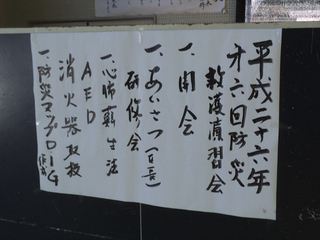 平成二十六年
才六回防災
救護演習会
一、開会
一、あいさつ(百喜)
研修会
一、心肺蘇生法
AED
消火器取扱
一、防災マップDIG